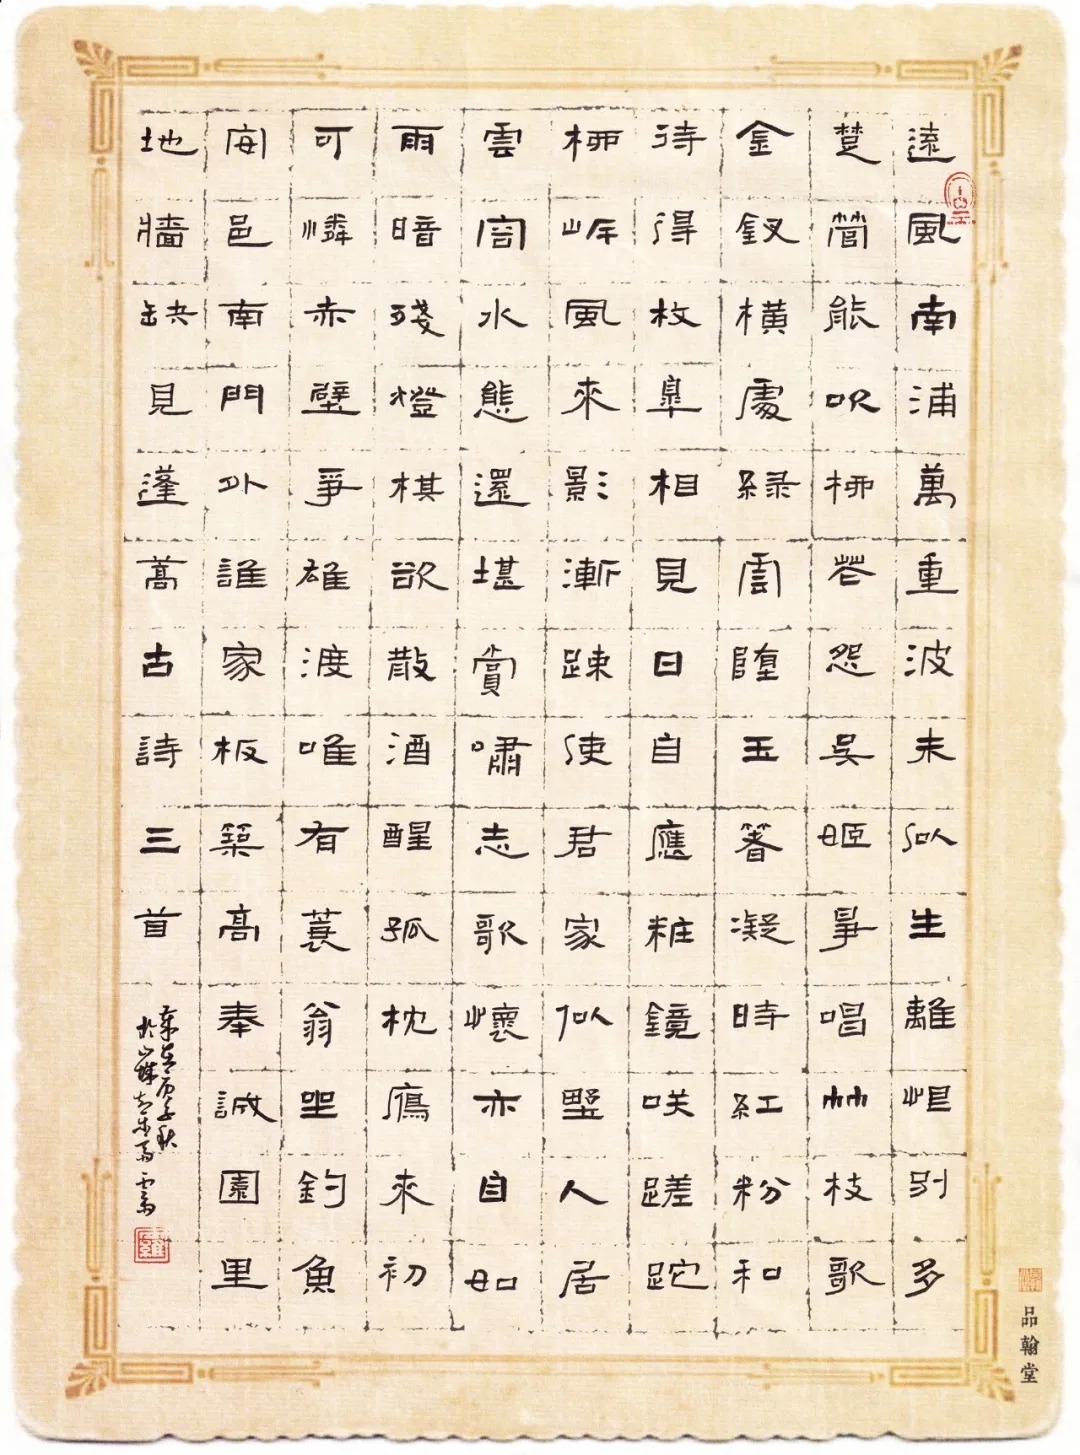 遠風南浦萬重波未似生離恨別多
楚管能吹柳花怨吳姬爭唱竹枝歌
金釵橫處綠雲墮玉箸凝時紅粉和
待得枚皐相見日自應粧鏡咲蹉跎
柳岸風來影漸疎使君家似墅人居
雲容水態還堪賞嘯志歌懷亦自如
雨暗殘燈棋欲散酒醒孤枕鴈來初
可憐赤壁爭雄渡唯有蓑翁坐釣魚
安邑南門外誰家板築高奉誠園里
地牆缺見蓬蒿古詩三首
品翰堂